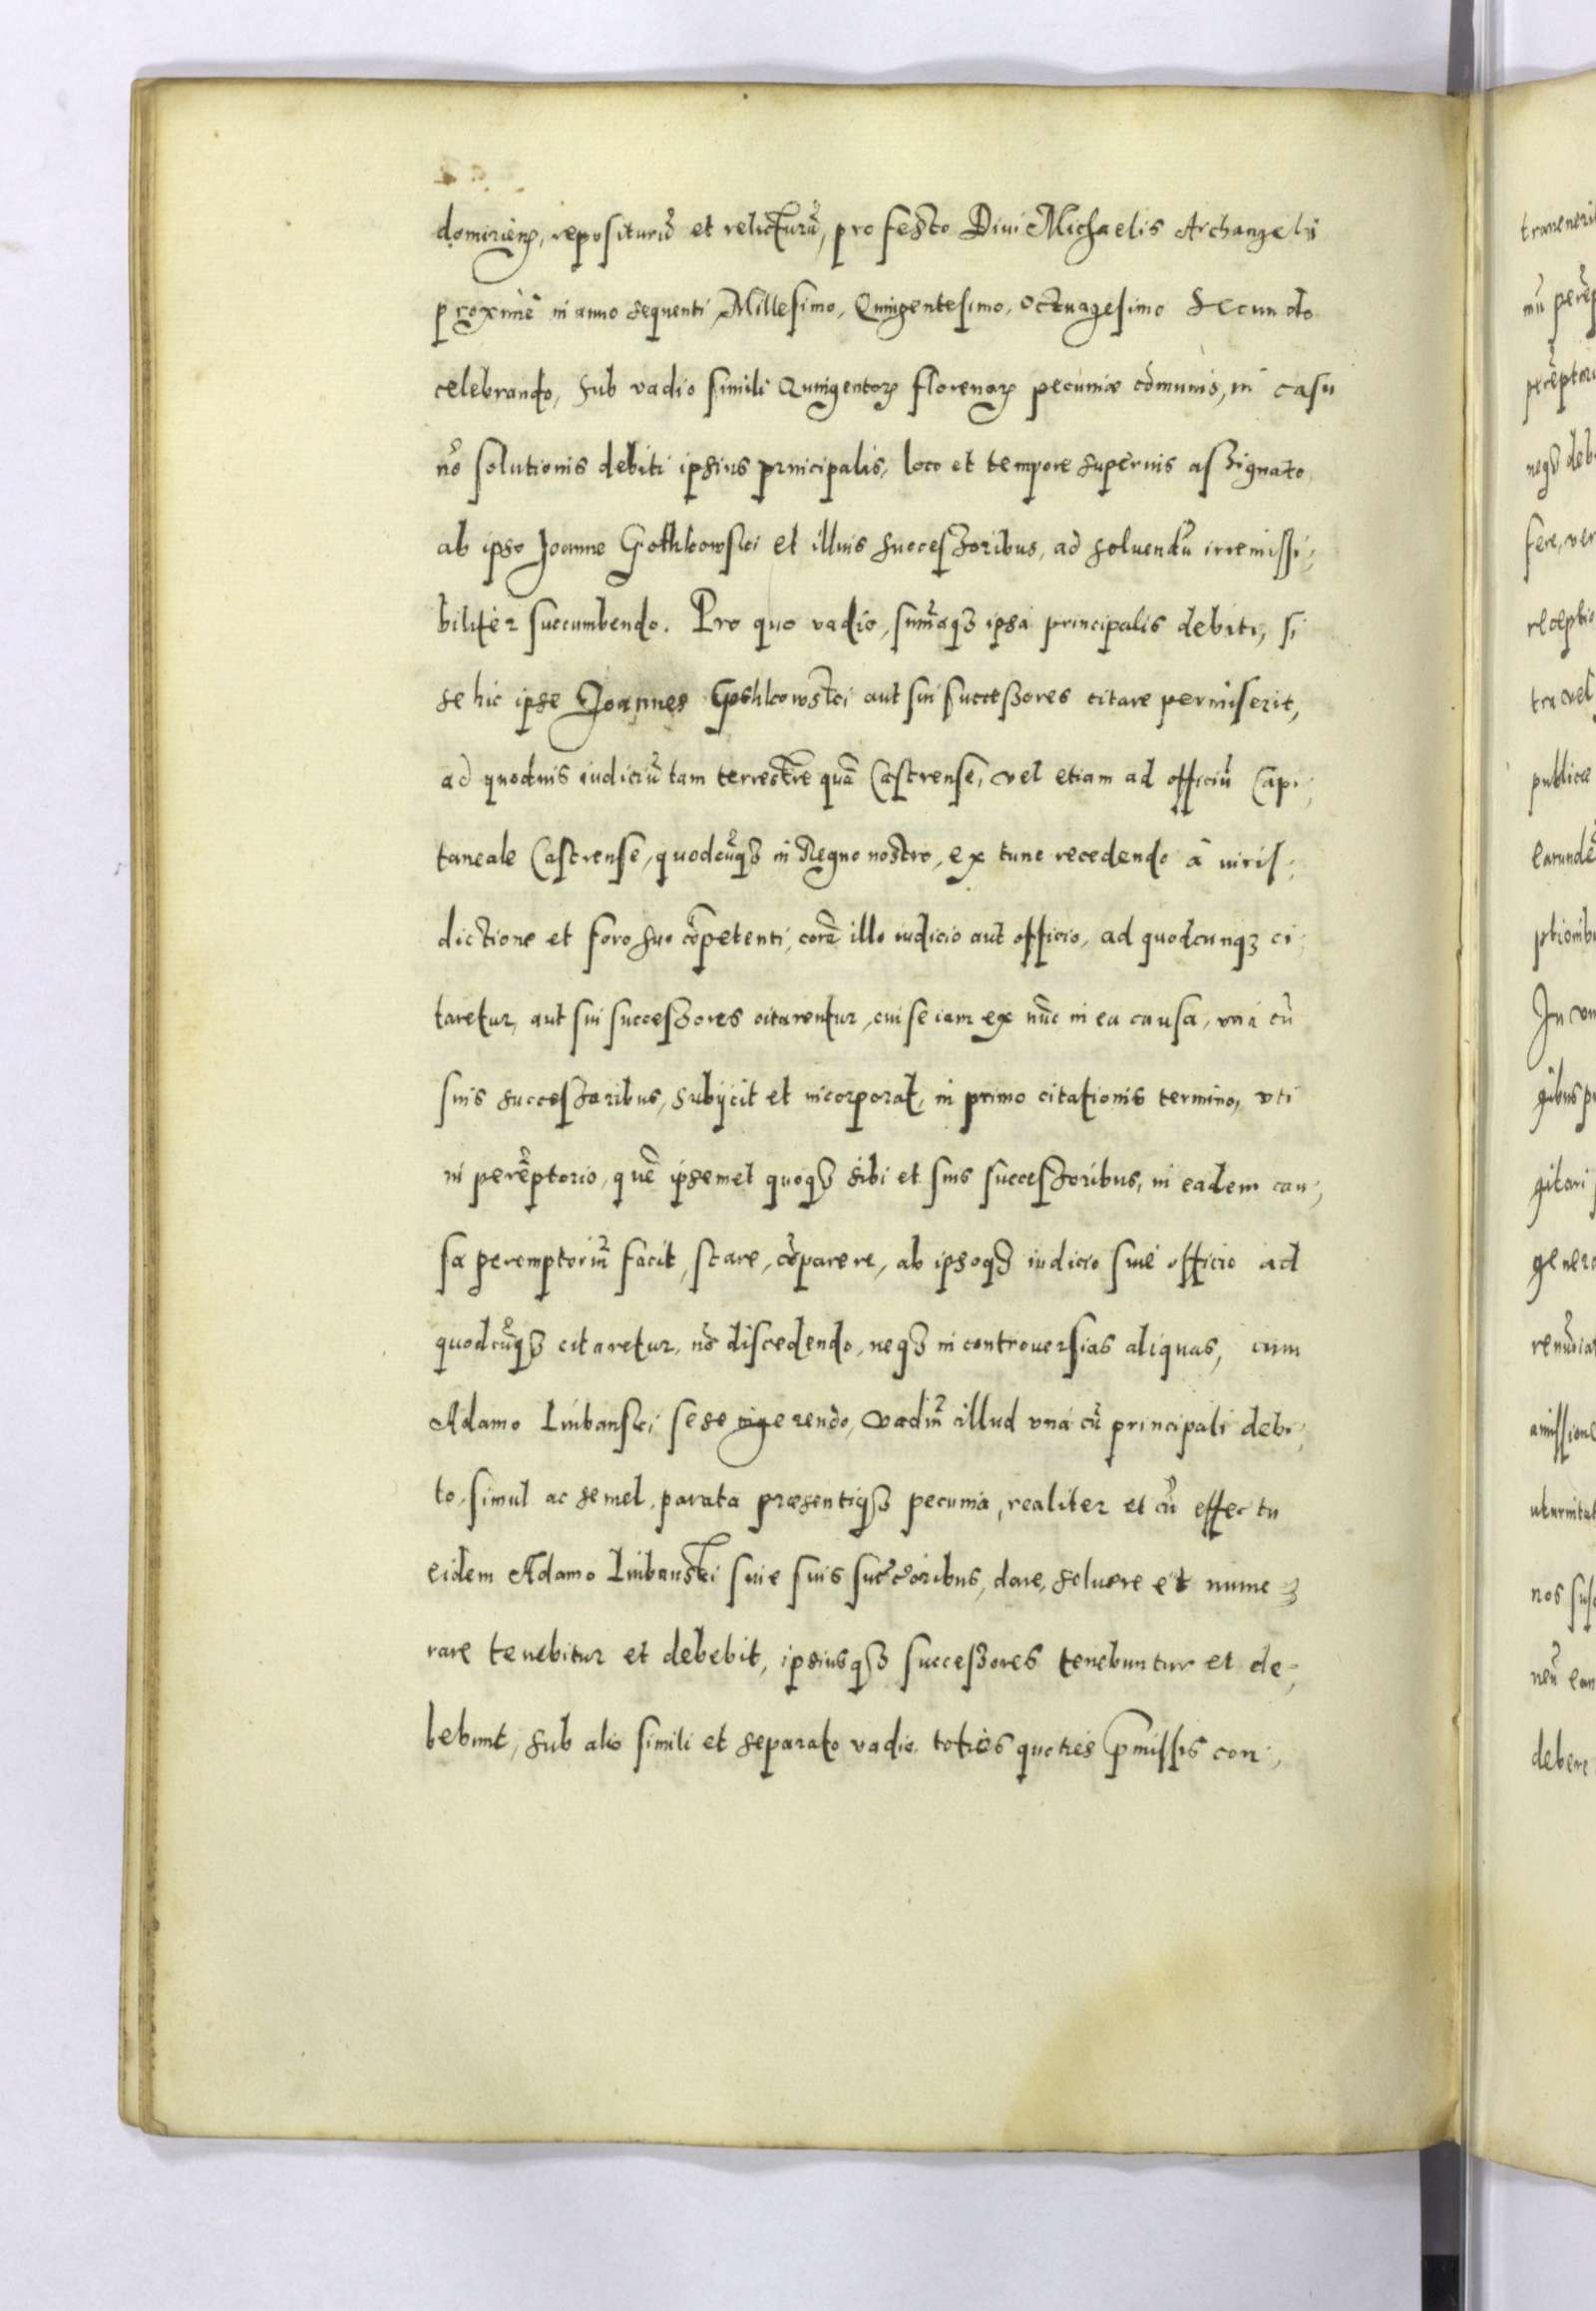 domirienß, repositurū et relicturū, pro festo Diui Michaelis Archangeli
proximè in anno sequenti, Millesimo, Quingentesimo, octuagesimo Secundo
celebrando, sub vadio simili Quingentorꝝ florenorꝝ pecuniæ cōmunis, in casu
nō solutionis debiti ipsius principalis, loco et tempore superius assignato,
ab ipso Joanne Goskkowski et illius successoribus, ad soluendū irremissi;
biliter succumbendo. Pro quo vadio, sum̄aqꝫ ipsa principalis debiti, si
se hic ipse Joannes Goshkowski aut sui successores citare permiserit,
ad quoduis iudiciū tam terrestre quā Castrense, vel etiam ad officiū Capi;
taneale Castrense, quodcūqꝫ in Regno nostro, ex tunc recedendo à iuris;
dictione et foro suo cōpetenti, corā illo iudicio aut officio, ad quodcunqꝫ ci;
taretur, aut sui successores citarentur, cui se iam ex nūc in ea causa, vnà cū
suis successoribus, subijcit et incorporat, in primo citationis termino, vti
in perēptorio, quē ipsemet quoqꝫ sibi et suis successoribus, in eadem cau;
sa peremptoriū facit, stare, cōparere, ab ipsoqꝫ iudicio siue officio ad
quodcūqꝫ citaretur, nō discedendo, neqꝫ in controuersias aliquas, cum
Adamo Linbanski sese ingerendo, vadiū illud vnà cū principali debi;
to, simul ac semel, parata præsentiqꝫ pecunia, realiter et cū effectu
eidem Adamo Linbanski siue suis succ̄oribus, dare, soluere et nume;
rare tenebitur et debebit, ipsiusqꝫ successores tenebuntur et de;
bebunt, sub alio simili et separato vadio, toties quoties p̄missis con;